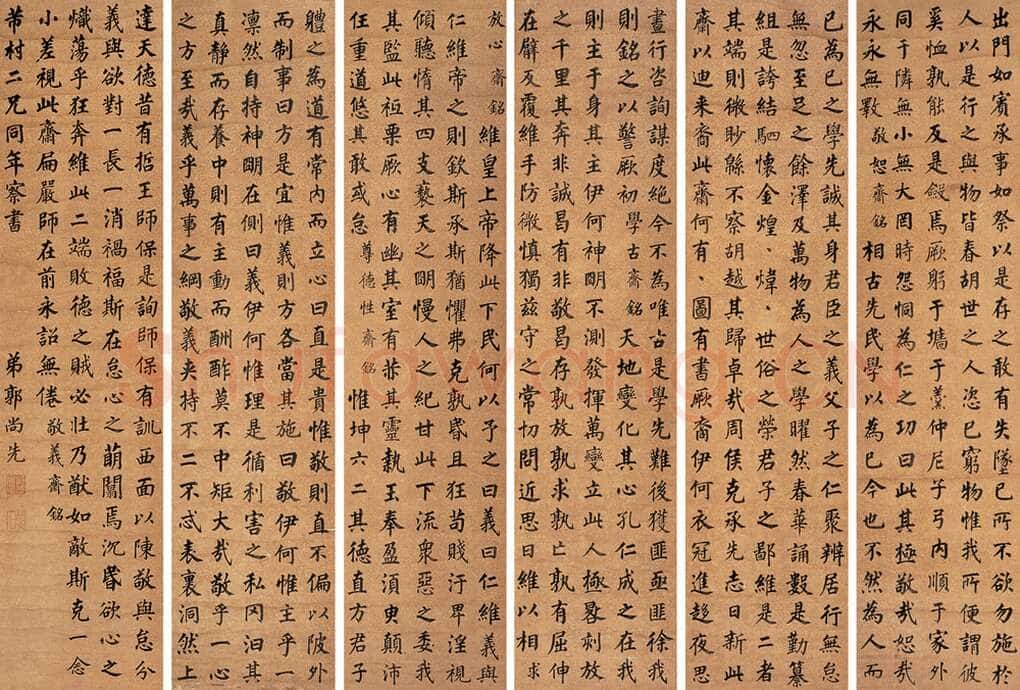 出門如賓承事如祭以是存之敢有失墜己所不欲勿施於
人以是行之與物皆春胡世之人恣己窮物惟我所便謂彼
奚恤孰能反是歛焉厥躬于墻于羹仲尼子弓內順于家外
同于隣無小無大罔時怨恫為仁之功曰此其極敬哉恕哉
永永無斁敬恕齋銘相古先民學以為己今也不然為人而
已為己之學先誠其身君臣之義父子之仁聚辨居行無怠
無忽至足之餘澤及萬物為人之學曜然春華誦數是勤纂
組是誇結駟懷金煌、煒、世俗之榮君子之鄙維是二者
其端則微眇緜不察胡越其歸卓哉周侯克承先志日新此
齋以迪來裔此齋何有、圖有書厥裔伊何衣冠進趨夜思
晝行咨詢謀度絕今不為唯古是學先難後獲匪亟匪徐我
則銘之以警厥初學古齋銘天地變化其心孔仁成之在我
則主于身其主伊何神明不測發揮萬變立此人極晷刻放
之千里其奔非誠曷有非敬曷存孰放孰求孰亡孰有屈伸
在臂反覆維手防微慎獨茲守之常切問近思曰維以相求
放心齋銘維皇上帝降此下民何以予之曰義曰仁維義與
仁維帝之則欽斯承斯猶懼弗克孰昏且狂苟賤汙卑淫視
傾聽惰其四支褻天之明慢人之紀甘此下流眾惡之委我
其監此祗栗厥心有幽其室有赫其靈執玉奉盈須臾顛沛
任重道悠其敢或怠尊德性齋銘惟坤六二其德直方君子
體之為道有常內而立心曰直是貴惟敬則直不偏以陂外
而制事曰方是宜惟義則方各當其施曰敬伊何惟主乎一
凜然自持神明在側曰義伊何惟理是循利害之私罔汩其
真靜而存養中則有主動而酬酢莫不中矩大哉敬乎一心
之方至哉義乎萬事之綱敬義夾持不二不忒表裏洞然上
達天德昔有哲王師保是詢師保有訓西面以陳敬與怠分
義與欲對一長一消禍福斯在怠心之萌闒焉沉昏欲心之
熾蕩乎狂奔維此二端敗德之賊必壯乃猷如敵斯克一念
小差視此齋扁嚴師在前永詔無倦敬義齋銘
芾村二兄同年察書 弟郭尚先